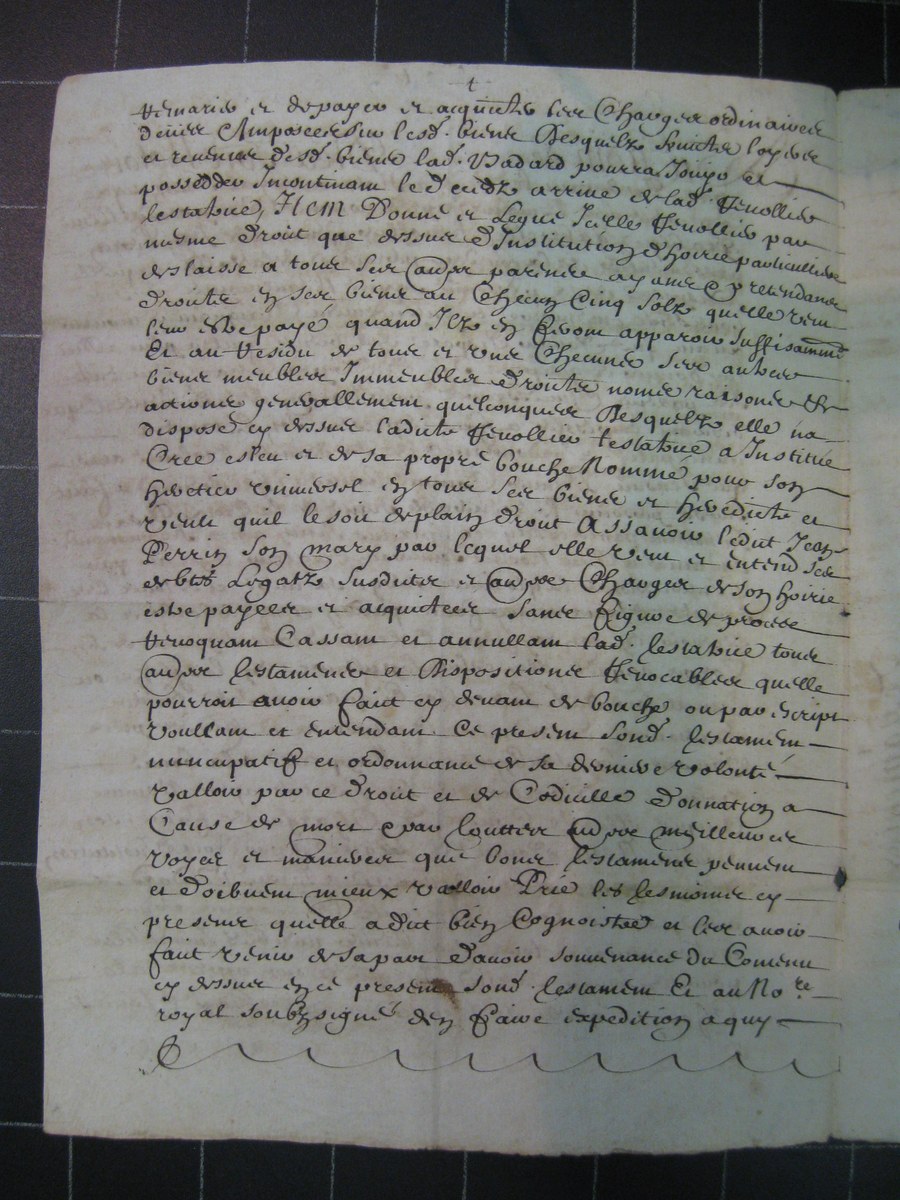 t
remaries et de payer et acquicter les Charges ordinaires
deues Imposees sur lesd. biens Desquelz fruictz loyers
et revenus desd. biens lad. Badard pourra Jouyr et
posseder Incontinant le deceds arrive de lad. Revollier
testatrice, Item Donne et Legue Icelle Revollier par
mesme droit que dessus d'Institution d'hoirie particulliere
deslaisse a tous ses autres parents aymes & pretendans
droitz en ses biens au Checun Cinq solz quelle veut
leur estre payé quand Ilz en feront apparoir suffisamment
Et au Residu de tous et uns Checuns ses autres
biens meubles Immeubles droitz noms raisons &
actions generallement quelconques Desquelz elle na
disposé cy dessus ladicte Revollier testatrice a Institué
Cree esleu et de sa propre bouche Nommé pour son
heretier universel en tous ses biens et heredicte et
veult quil le soit de plain droit Assavoir ledit Jean
Perrin son mary par lequel elle veut et entend ses
debtes Legatz susdits et autres Charges de son hoirie
estre payees et acquictees sans figure de proces
Revoquant Cassant et annullant lad. testatrice tous
autres testaments et Dispositions Revocables quelle
pourroit avoir fait cy devant de bouche ou par escript
Voullant et entendant Ce present sond. testament
nuncupatif et ordonnance de sa derniere volonté
valloir par ce droit et de Codicille donnation a
Cause de mort & par touttes autres meilleures
voyes et manieres que bons testaments peuvent
et doibvent mieux valloir Prié les tesmoins cy
presens quelle a dict bien Cognoistre et les avoir
fait venir de sa part d'avoir souvenance du Contenu
cy dessus en ce present sond. testament Et au No.re
royal soubzsigné den faire expedition a quy